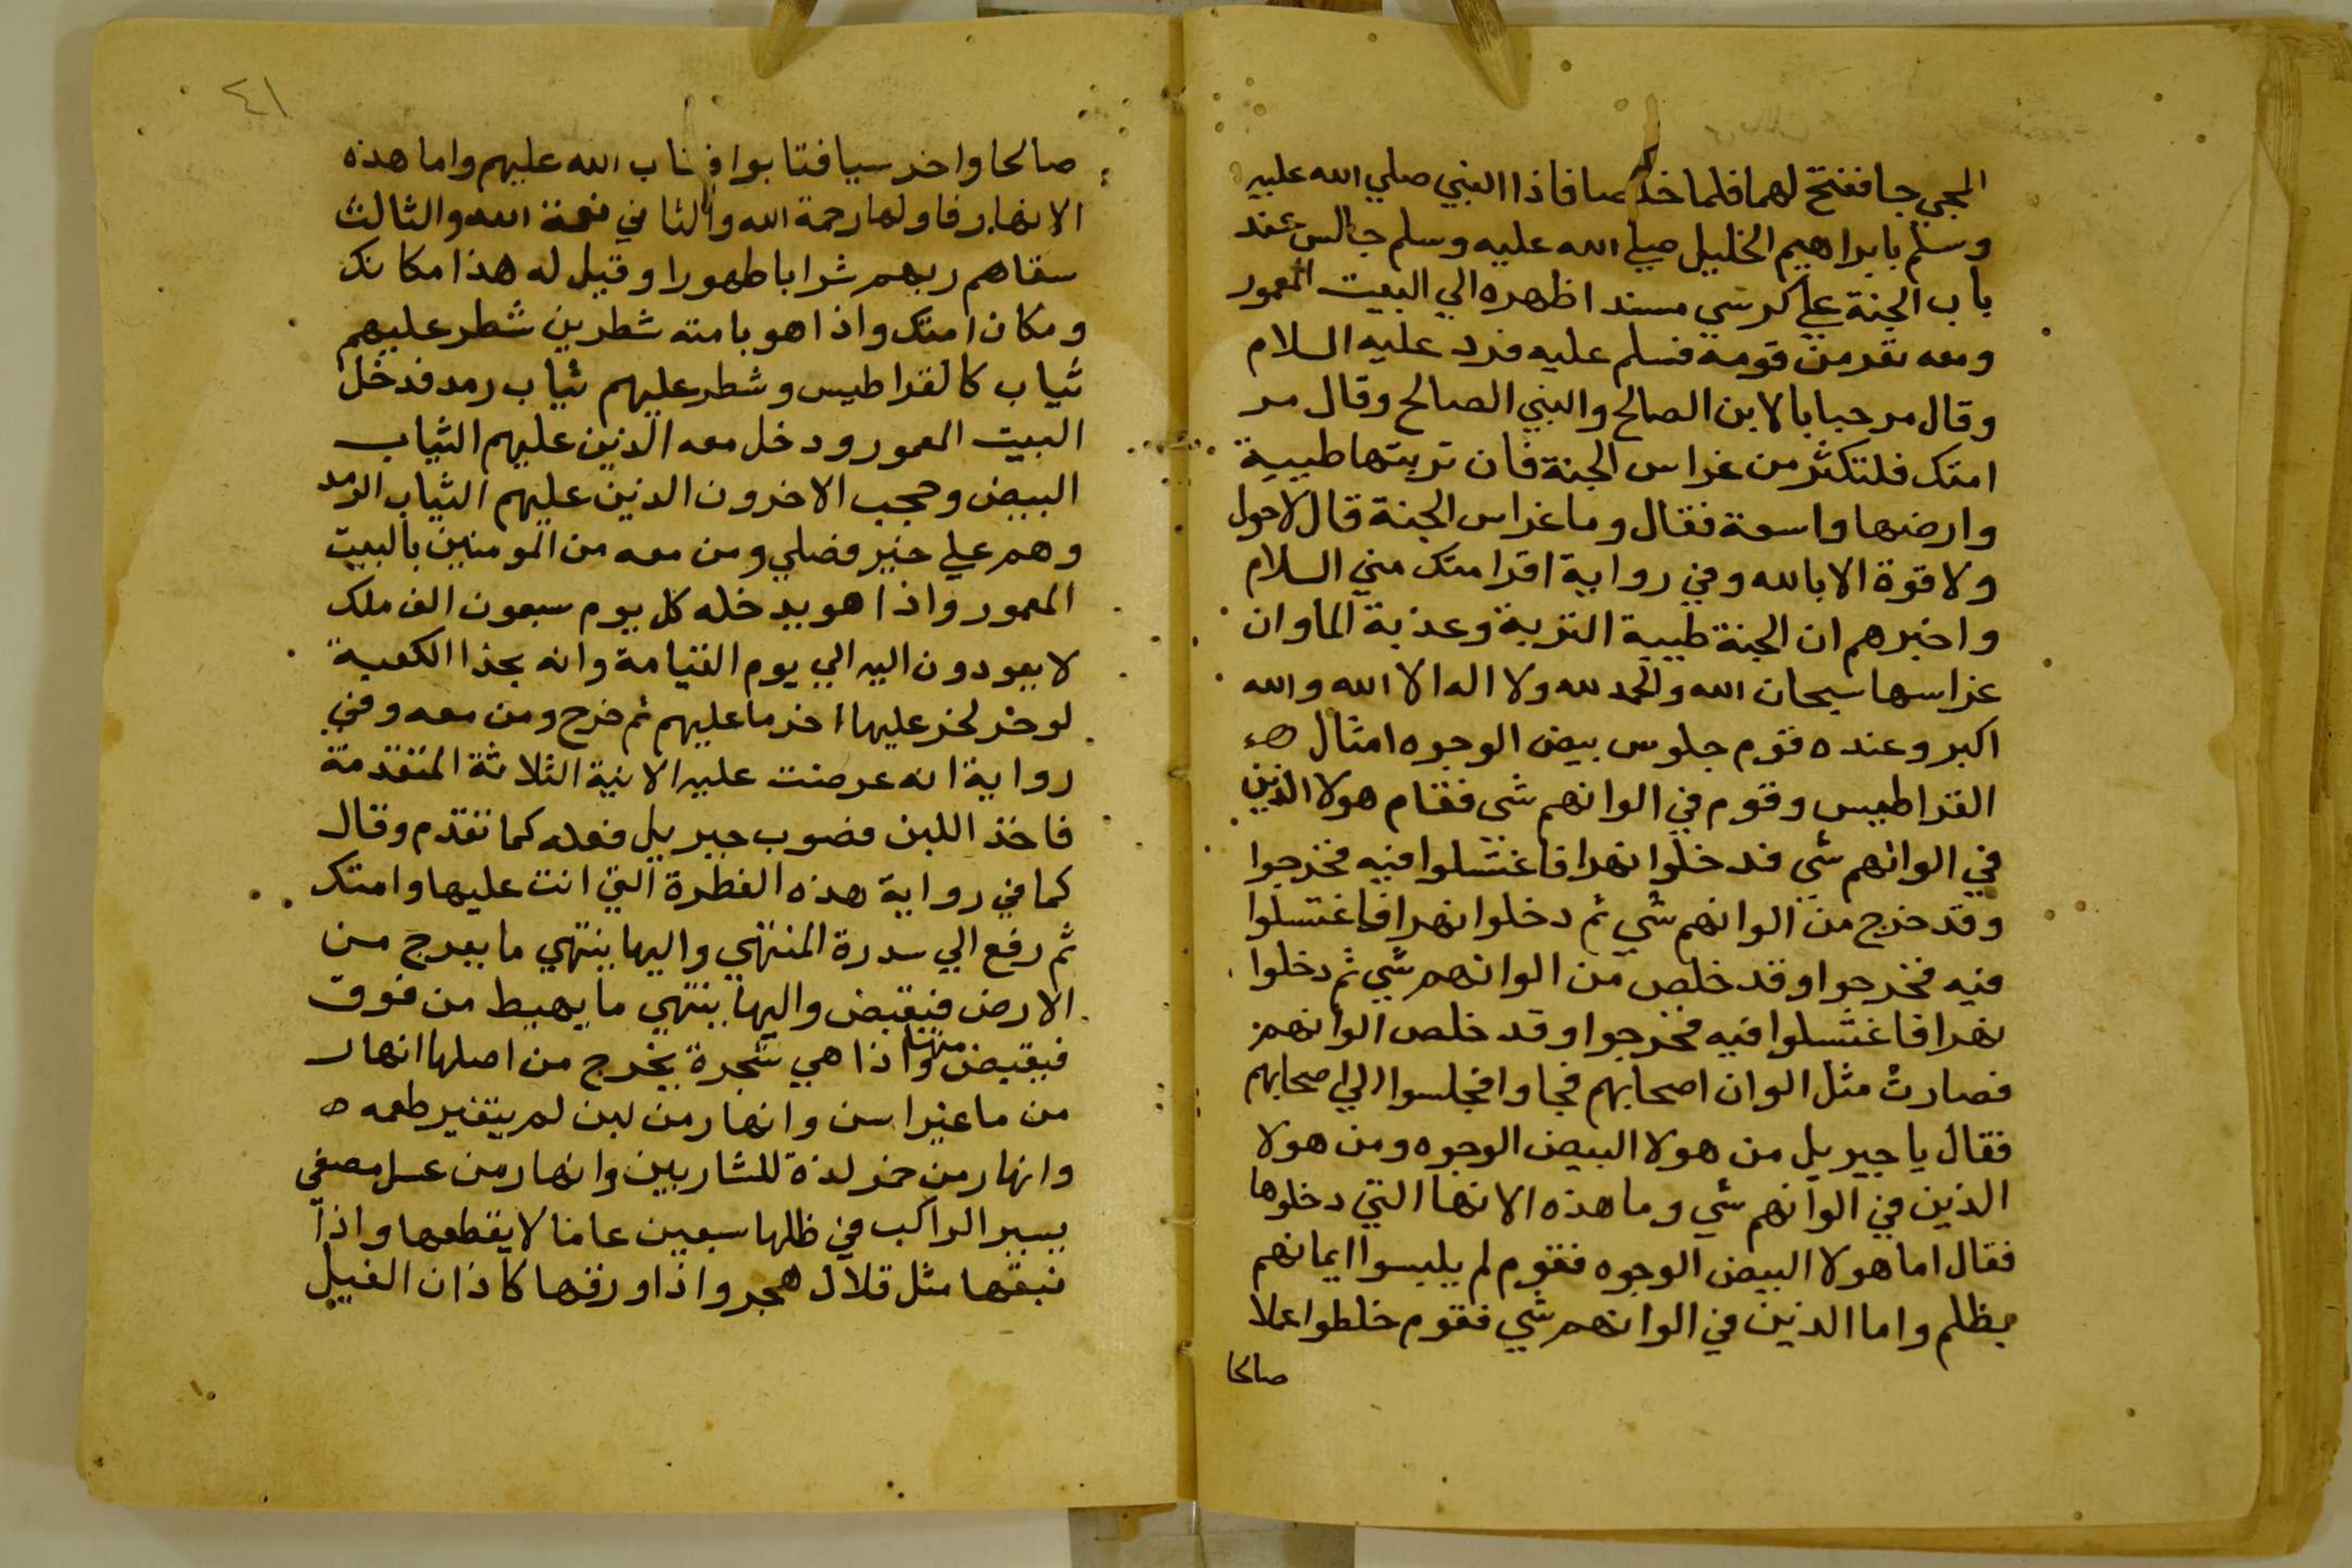 المجي جا ففتح لهما فلما خلصا فاذا النبي صلي الله عليه
وسلم بابراهيم الخليل صلي الله عليه وسلم جالس عند
باب الجنة علي كرسي مسندا ظهره الي البيت المعمور
ومعه نفر من قومه فسلم عليه فرد عليه السلام
وقال مرحبا بالابن الصالح والنبي الصالح وقال مر
امتك فلتكثر من غراس الجنة فان تربتها طيبة
وارضها واسعة فقال وما غراس الجنة قال لاحول
ولا قوة الا بالله وفي رواية اقرا امتك مني السلام
واخبرهم ان الجنة طيبة التربة وعذبة الما وان
غراسها سبحان الله والحمد لله ولا اله الا الله والله
اكبر وعنده قوم جلوس بيض الوجوه امثال
القراطيس وقوم في الوانهم شي فقام هولا الذين
في الوانهم شي فدخلوا نهرا فاغتسلوا فيه فخرجوا
وقد خرج من الوانهم شي ثم دخلوا نهرا فاغتسلوا
فيه فخرجوا وقد خلص من الوانهم شي ثم دخلوا
نهرا فاغتسلوا فيه فخرجوا وقد خلص الوانهم
فصارت مثل الوان اصحابهم فجاوا فجلسوا الي اصحابهم
فقال يا جبريل من هولا البيض الوجوه ومن هولا
الذين في الوانهم شي وما هذه الانها التي دخلوها
فقال اما هولا البيض الوجوه فقوم لم يلبسوا ايمانهم
بظلم واما الذين في الوانهم شي فقوم خلطوا عملا
صالحا
٤١
صالحا واخر سيا فتابوا فتاب الله عليهم واما هذه
الانهار فاولها رحمة الله والثاني نعمة الله والثالث
سقاهم ربهم شرابا طهورا وقيل له هذا مكانك
ومكان امتك واذا هو بامته شطرين شطر عليهم
ثياب كالقراطيس وشطر عليهم ثياب رمد فدخل
البيت المعمور ودخل معه الذين عليهم الثياب
البيض وحجب الاخرون الذين عليهم الثياب الرمد
وهم علي خير فصلي ومن معه من المومنين بالبيت
المعمور واذا هو يدخله كل يوم سبعون الف ملك
لا يعودون اليه الي يوم القيامة وانه بحذا الكعبة
لو خر لخر عليها اخر ما عليهم ثم خرج ومن معه وفي
رواية انه عرضت عليه الانية الثلاثة المتقدمة
فاخذ اللبن فصوب جبريل فعله كما تقدم وقال
كما في رواية هذه الفطرة التي انت عليها وامتك
ثم رفع الي سدرة المنتهي واليها ينتهي ما يعرج من
الارض فيقبض واليها ينتهي ما يهبط من فوق
فيقبض منها واذا هي شجرة يخرج من اصلها انهار
من ما غير اسن وانهار من لبن لم يتغير طعمه
وانهار من خمر لذة للشاربين وانهار من عسل مصفي
يسير الراكب في ظلها سبعين عاما لا يقطعها واذا
نبقها مثل قلال هجر واذا ورقها كاذان الفيل